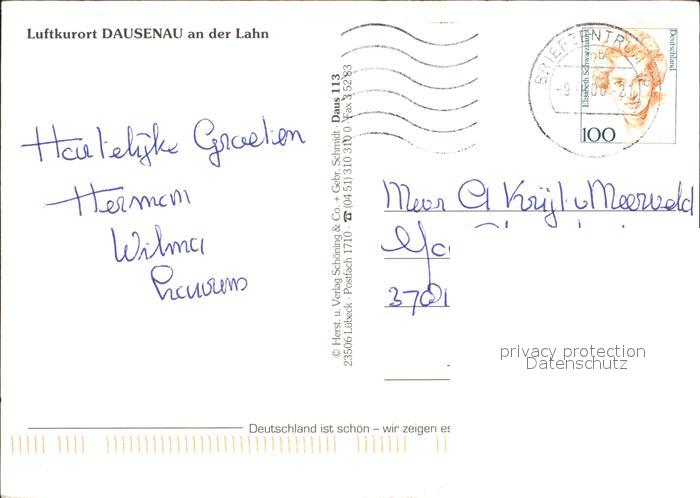 Luftkurort DAUSENAU an der Lahn
Hartelijke Groeten
Herman
Wilma
© Herst. u. Verlag Schöning & Co. + Gebr. Schmidt · Daus 113
23506 Lübeck · Postfach 1710 · ☎ (04 51) 310 310 0 · Fax 3 52 83
BRIEFZENTRUM
Elisabeth Schwarzhaupt
Deutschland
100
Mevr
Meerveld
privacy protection
Datenschutz
Deutschland ist schön – wir zeigen es